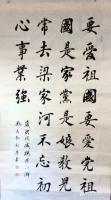 要愛祖國要愛党祖
國是家黨是娘教兒
常去梁家河不忘初
心事業強